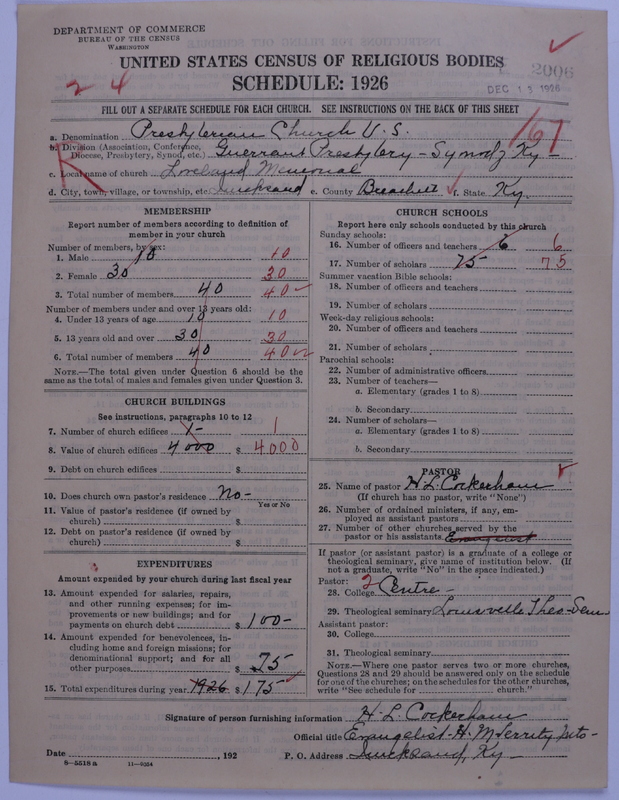 DEPARTMENT OF COMMERCE
BUREAU OF THE CENSUS
WASHINGTON
UNITED STATES CENSUS OF RELIGIOUS BODIES
SCHEDULE: 1926
2 4
2006
DEC 13 1926
FILL OUT A SEPARATE SCHEDULE FOR EACH CHURCH. SEE INSTRUCTIONS ON THE BACK OF THIS SHEET
167
R
a. Denomination Presbyterian Church U. S.
b. Division (Association, Conference, Diocese, Presbytery, Synod, etc.) Guerrant Presbytery - Synod of Ky -
c. Local name of church Loveland Memorial
d. City, town, village, or township, etc. Quicksand e. County Breathitt f. State Ky.
MEMBERSHIP
Report number of members according to definition of
member in your church
Number of members, by sex:
1. Male 10 10
2. Female 30 30
3. Total number of members 40 40
Number of members under and over 13 years old:
4. Under 13 years of age 10 10
5. 13 years old and over 30 30
6. Total number of members 40 40
NOTE.—The total given under Question 6 should be
same as the total of males and females given under Question 3.
CHURCH BUILDINGS
See instructions, paragraphs 10 to 12
7. Number of church edifices 1- 1
8. Value of church edifices 4000 $ 4000
9. Debt on church edifices $
10. Does church own pastor's residence No-
Yes or No
11. Value of pastor's residence (if owned by
church) $
12. Debt on pastor's residence (if owned by
church) $
EXPENDITURES
Amount expended by your church during last fiscal year
13. Amount expended for salaries, repairs,
and other running expenses; for im-
provements or new buildings; and for
payments on church debt $ 100-
14. Amount expended for benevolences, in-
cluding home and foreign missions; for
denominational support; and for all
other purposes $ 75
15. Total expenditures during year 1926 $ 175
CHURCH SCHOOLS
Report here only schools conducted by this church
Sunday schools:
16. Number of officers and teachers 6 6
17. Number of scholars 75- 75
Summer vacation Bible schools:
18. Number of officers and teachers
19. Number of scholars
Week-day religious schools:
20. Number of officers and teachers
21. Number of scholars
Parochial schools:
22. Number of administrative officers
23. Number of teachers—
a. Elementary (grades 1 to 8)
b. Secondary
24. Number of scholars—
a. Elementary (grades 1 to 8)
b. Secondary
PASTOR
25. Name of pastor H L Cockerham
(If church has no pastor, write "None")
26. Number of ordained ministers, if any, em-
ployed as assistant pastors
27. Number of other churches served by the
pastor or his assistants Evangelist
If pastor (or assistant pastor) is a graduate of a college or
theological seminary, give name of institution below. (If
not a graduate, write "No" in the space indicated.)
Pastor: 2
28. College Centre -
29. Theological seminary Louisville Theo-Sem
Assistant pastor:
30. College
31. Theological seminary
NOTE.—Where one pastor serves two or more churches,
Questions 28 and 29 should be answered only on the schedule
for one of the churches; on the schedules for the other churches,
write "See schedule for church."
Signature of person furnishing information H. L. Cockerham
Official title Evangelist-H. M
Date , 192
P. O. Address Quicksand, Ky-
8—5518 a 11—9354